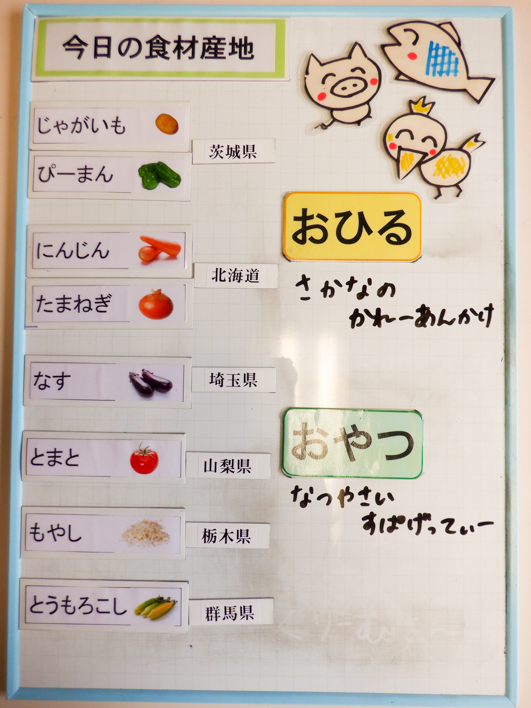 今日の食材産地
じゃがいも
ぴーまん
茨城県
にんじん
北海道
たまねぎ
なす
埼玉県
とまと
山梨県
もやし
栃木県
とうもろこし
群馬県
おひる
さかなの
かれーあんかけ
おやつ
なつやさい
すぱげってぃー